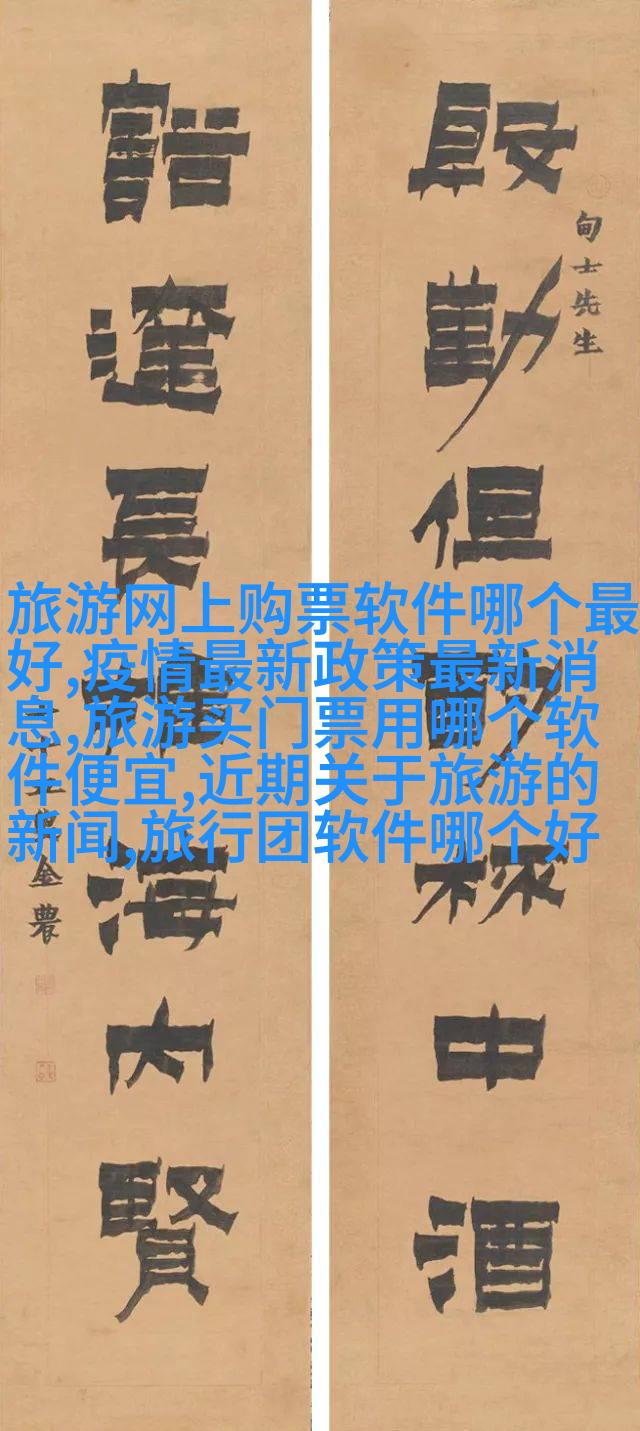 殷勤但酌杯中酒
甸士先生
豁達長海内賢
金農
旅游网上购票软件哪个最
好,疫情最新政策最新消
息,旅游买门票用哪个软
件便宜,近期关于旅游的
新闻,旅行团软件哪个好